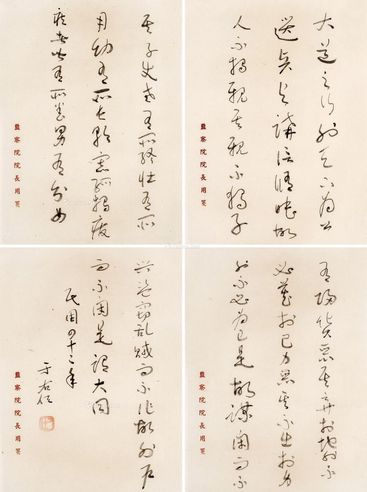 大道之行也天下為公
選賢與能講信修睦故
人不獨親其親不獨子
監察院院長用箋
其子使老有所終壯有所
用幼有所長矜寡孤獨廢
疾者皆有所養男有分女
監察院院長用箋
有歸貨惡其棄於地也不
必藏於己力惡其不出於身
也不必為己是故謀閉而不
監察院院長用箋
興盜竊亂賊而不作故外戶
而不閉是謂大同
民國四十二年
于右任
監察院院長用箋